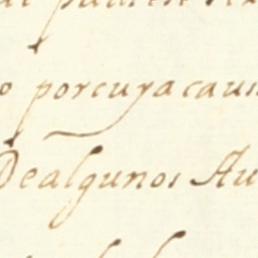 o porcuya caus
De algunos Au